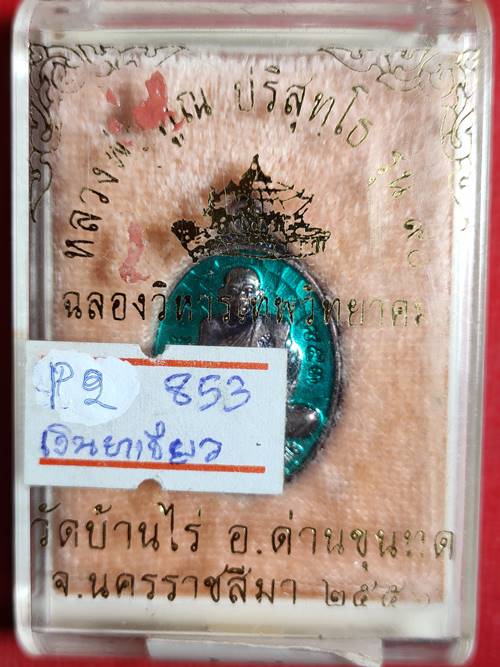 ปริสุทฺโธ
ฉลองวิหารเทพวิทยาคม
P2 853
เงินยาเขียว
วัดบ้านไร่ อ.ด่านขุนทด
จ.นครราชสีมา